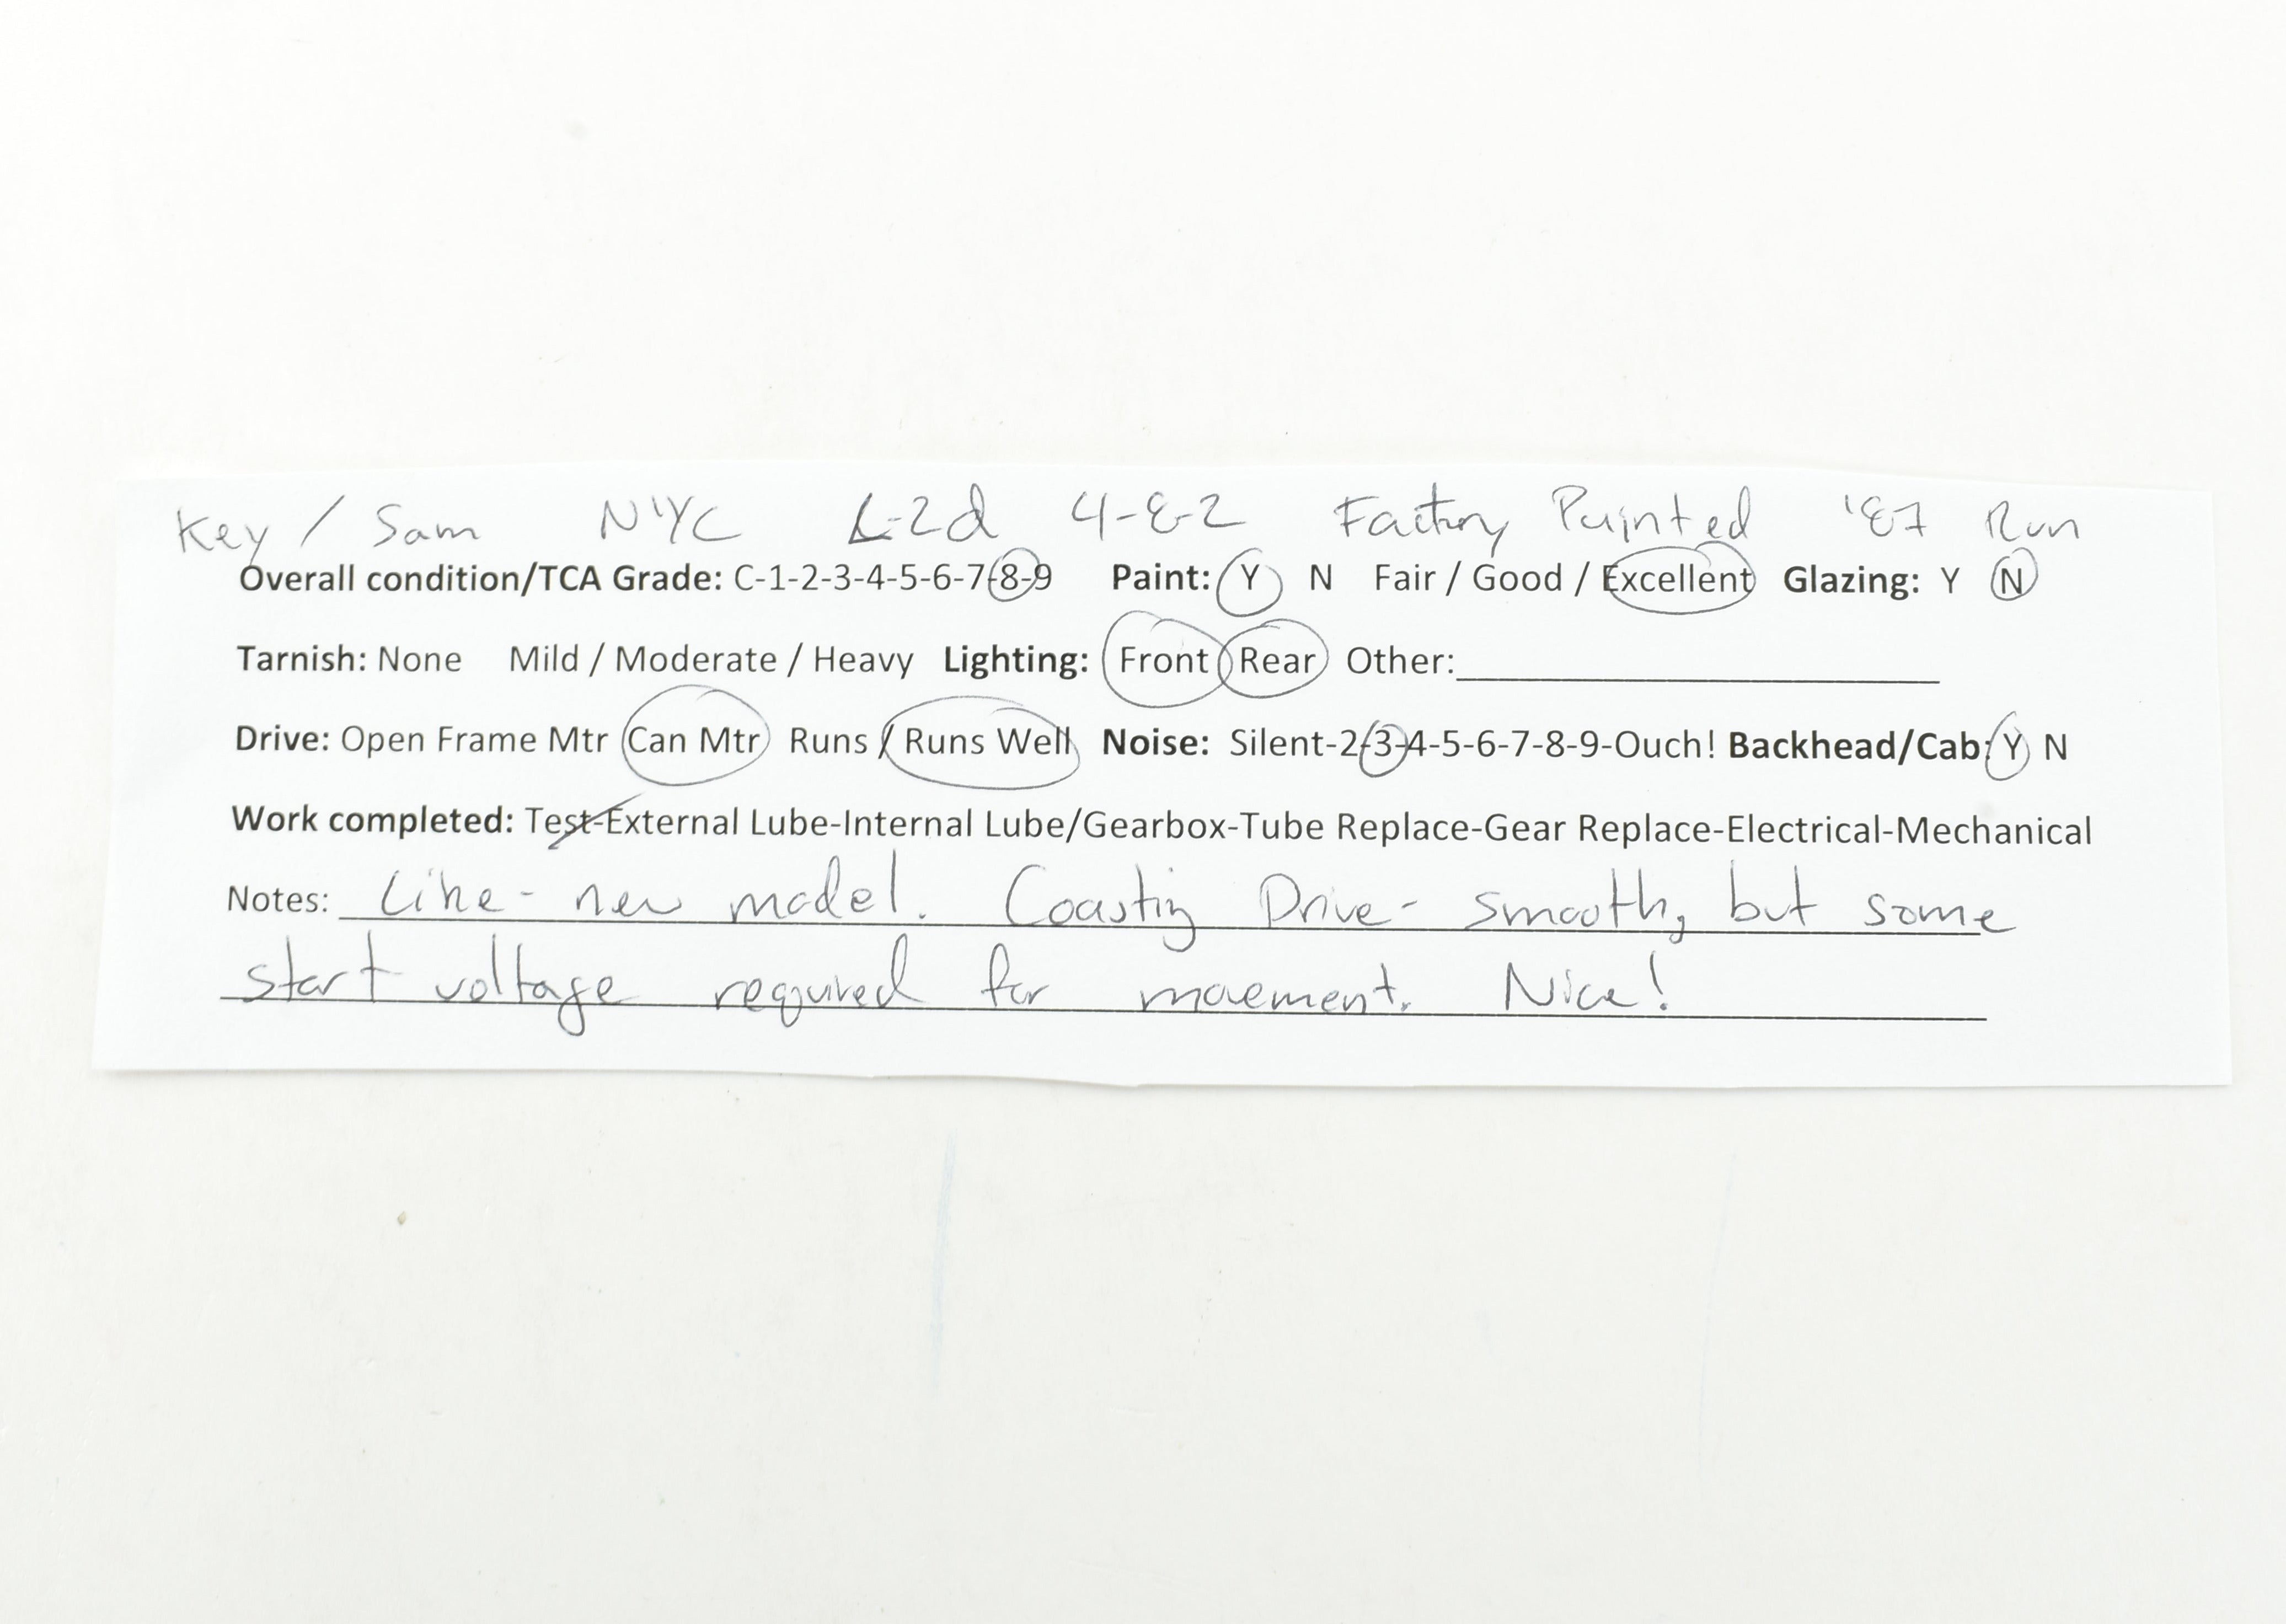 Key / Sam NYC L-2d 4-8-2 Factory Painted '87 Run
Overall condition/TCA Grade: C-1-2-3-4-5-6-7-8-9 Paint: Y N Fair / Good / Excellent Glazing: Y N
Tarnish: None Mild / Moderate / Heavy Lighting: Front Rear Other:
Drive: Open Frame Mtr Can Mtr Runs / Runs Well Noise: Silent-2-3-4-5-6-7-8-9-Ouch! Backhead/Cab: Y N
Work completed: Test-External Lube-Internal Lube/Gearbox-Tube Replace-Gear Replace-Electrical-Mechanical
Notes: Like-new model. Coasting Drive- smooth, but some
start voltage required for movement. Nice!